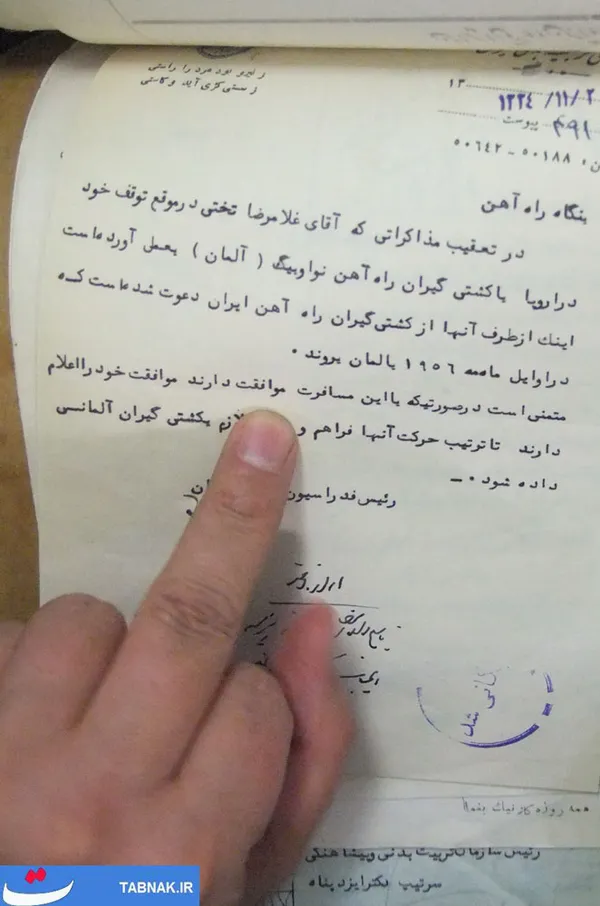 ز نیرو بود مرد را راستی
ز سستی کژی آید و کاستی
۱۳
۱۳۳۴/۱۱/۲
۴۹۱ پیوست
۵۰۱۸۸ – ۵۰۶۴۲
بنگاه راه آهن
در تعقیب مذاکراتی که آقای غلامرضا تختی در موقع توقف خود
در اروپا با کشتی گیران راه آهن نواوبینگ ( آلمان ) بعمل آورده است
اینك از طرف آنها از کشتی گیران راه آهن ایران دعوت شده است که
در اوایل ماه مه ۱۹۵۶ بالمان بروند .
متمنی است در صورتیکه با این مسافرت موافقت دارند موافقت خود را اعلام
دارند تا ترتیب حرکت آنها فراهم و لازم بکشتی گیران آلمانی
داده شود . ـ
رئیس فدراسیون
همه روزه کار نیك
رئیس سازمان تربیت بدنی و پیشاهنگی
سرتیپ دکتر ایزد پناه
TABNAK.IR